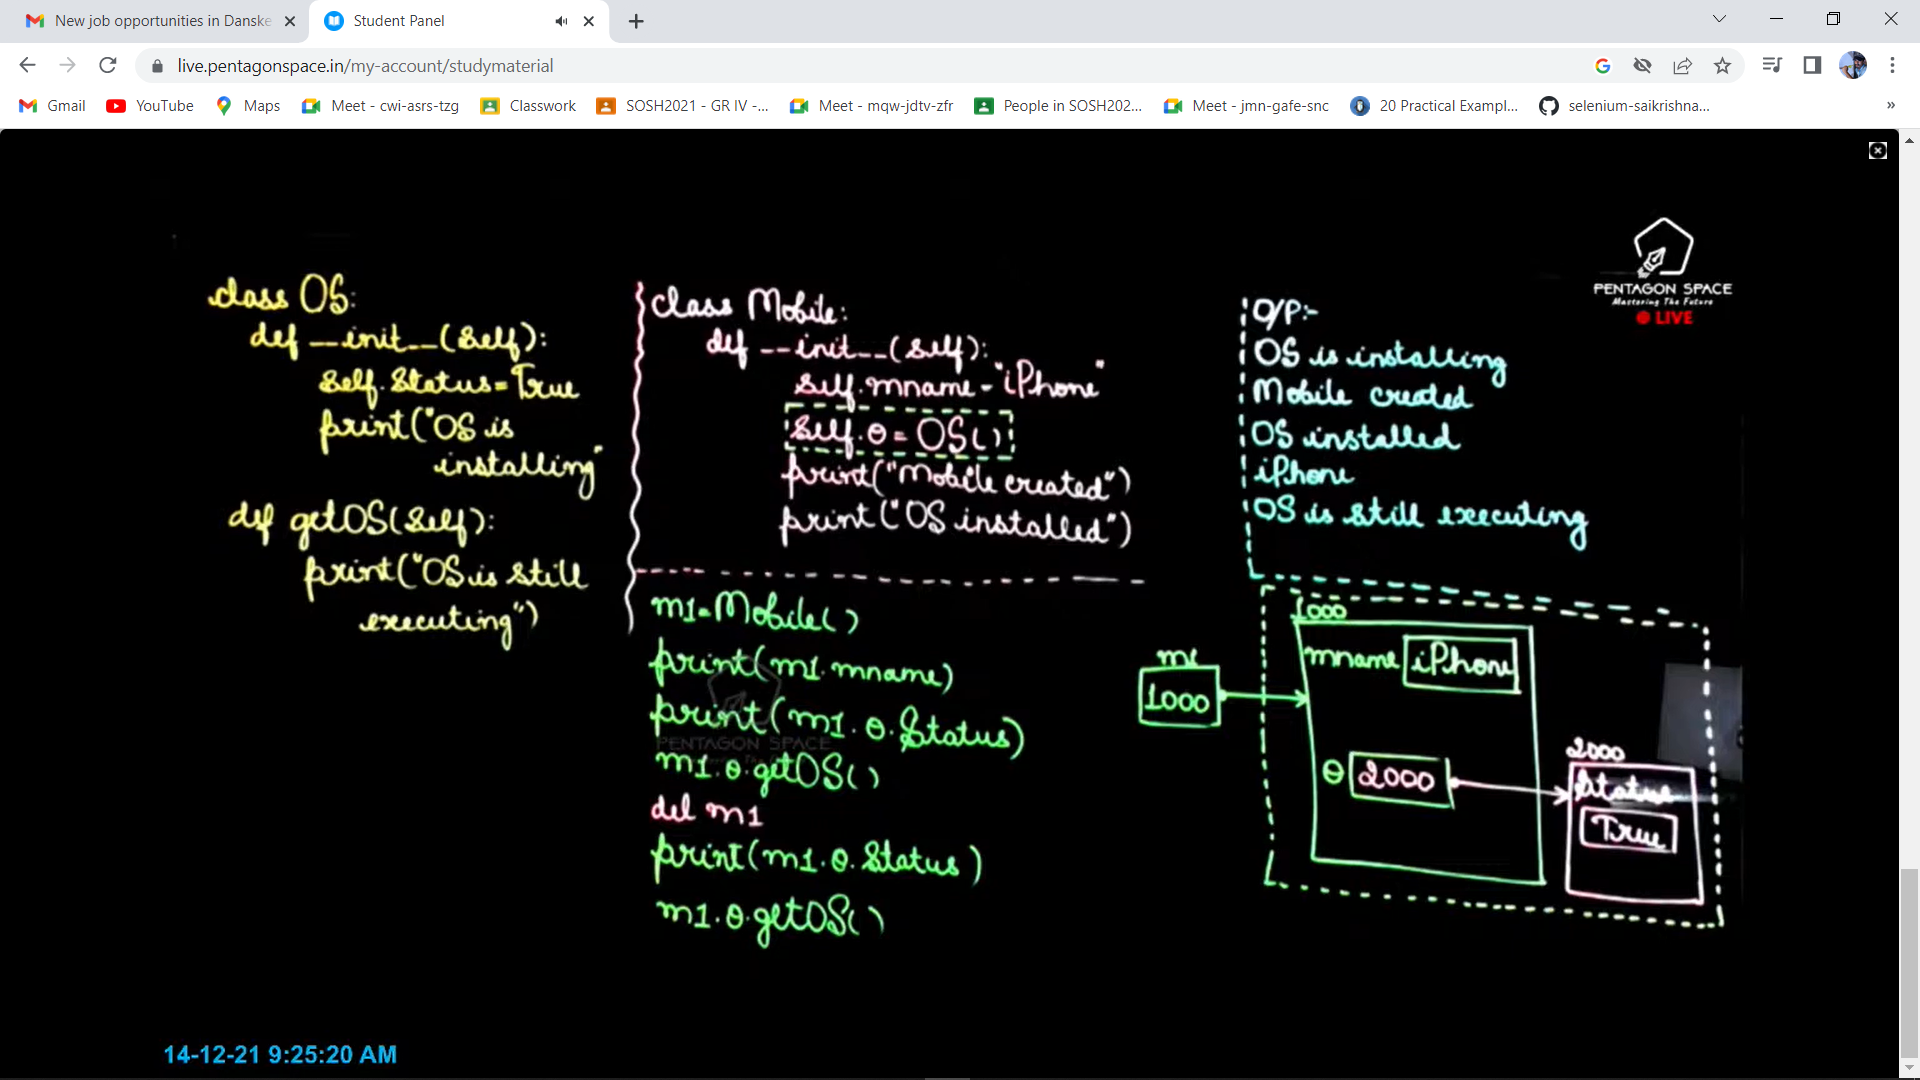 New job opportunities in Danske
Student Panel
live.pentagonspace.in/my-account/studymaterial
Gmail
YouTube
Maps
Meet - cwi-asrs-tzg
Classwork
SOSH2021 - GR IV -...
Meet - mqw-jdtv-zfr
People in SOSH202...
Meet - jmn-gafe-snc
20 Practical Exampl...
selenium-saikrishna...
»
class OS:
def __init__(self):
self.Status=True
print("OS is
installing"
def getOS(self):
print("OS is still
executing")
class Mobile:
def __init__(self):
self.mname="iPhone"
self.o = OS()
print("Mobile created")
print("OS installed")
m1=Mobile()
print(m1.mname)
print(m1.o.Status)
m1.o.getOS()
del m1
print(m1.o.Status)
m1.o.getOS()
PENTAGON SPACE
PENTAGON SPACE
Mastering The Future
LIVE
O/P:-
OS is installing
Mobile created
OS installed
iPhone
OS is still executing
m1
1000
1000
mname iPhone
o 2000
2000
Status
True
14-12-21 9:25:20 AM